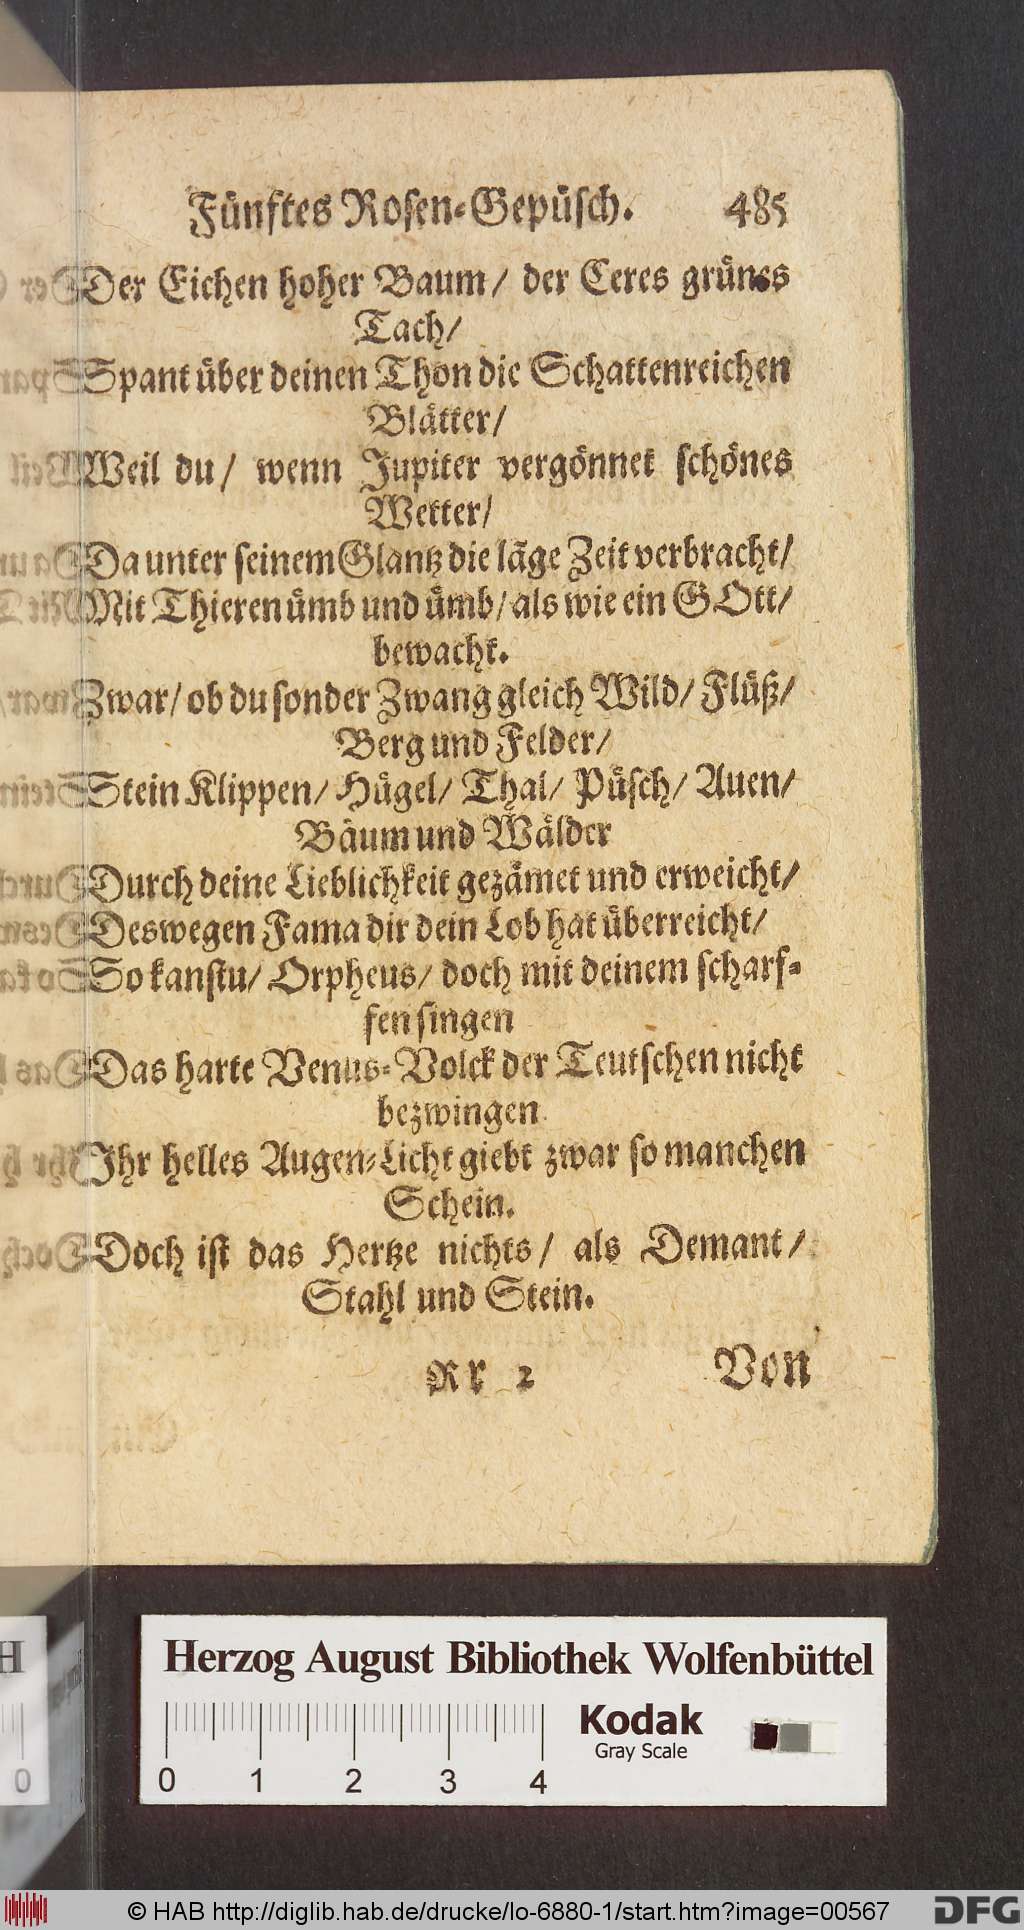 Fünftes Rosen-Gepüsch. 485
Der Eichen hoher Baum/ der Ceres grünes
Tach/
Spant über deinen Thon die Schattenreichen
Blätter/
Weil du/ wenn Jupiter vergönnet schönes
Wetter/
Da unter seinem Glantz die lãge Zeit verbracht/
Mit Thieren ümb und ümb/ als wie ein GOtt/
bewacht.
Zwar/ ob du sonder Zwang gleich Wild/ Flüß/
Berg und Felder/
Stein Klippen/ Hügel/ Thal/ Püsch/ Auen/
Bäum und Wälder
Durch deine Lieblichkeit gezämet und erweicht/
Deswegen Fama dir dein Lob hat überreicht/
So kanstu/ Orpheus/ doch mit deinem scharf-
fen singen
Das harte Venus-Volck der Teutschen nicht
bezwingen
Ihr helles Augen-Licht giebt zwar so manchen
Schein.
Doch ist das Hertze nichts/ als Demant/
Stahl und Stein.
Rr 2 Von
Herzog August Bibliothek Wolfenbüttel
Kodak
Gray Scale
0 1 2 3 4
H
0
© HAB http://diglib.hab.de/drucke/lo-6880-1/start.htm?image=00567
DFG